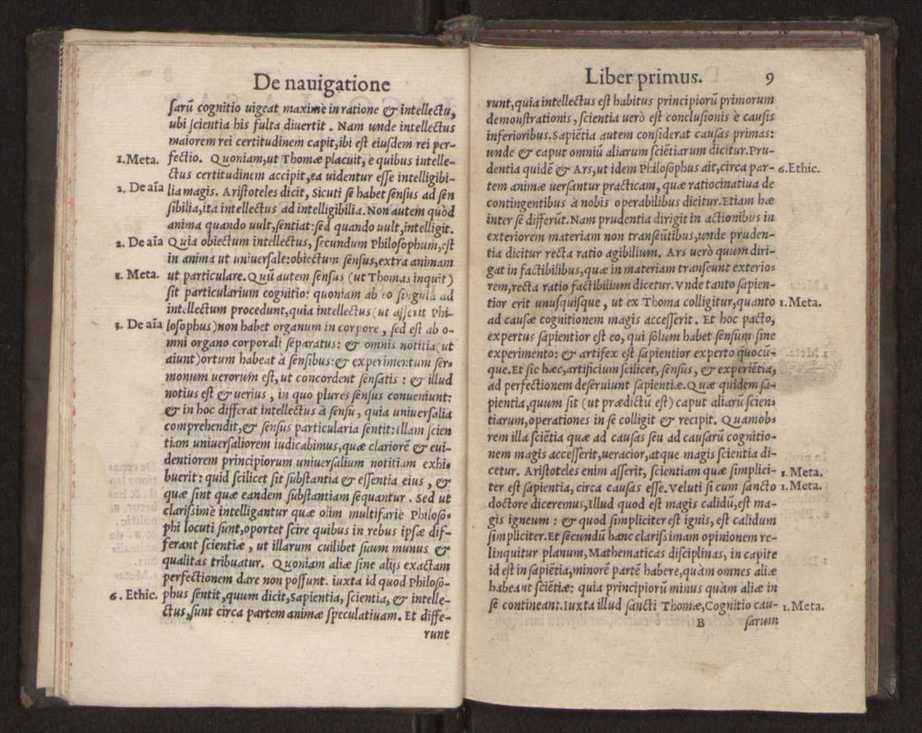 De nauigatione
sarũ cognitio uigeat maxime in ratione & intellectu,
ubi scientia his fulta diuertit. Nam unde intellectus
maiorem rei certitudinem capit, ibi est eiusdem rei per-
1. Meta. fectio. Quoniam, ut Thomæ placuit, è quibus intelle-
ctus certitudinem accipit, ea uidentur esse intelligibi-
2. De aĩa lia magis. Aristoteles dicit, Sicuti se habet sensus ad sen
sibilia, ita intellectus ad intelligibilia. Non autem quòd
anima quando uult, sentiat: sed quando uult, intelligit.
2. De aĩa Quia obiectum intellectus, secundum Philosophum, est
in anima ut uniuersale: obiectum sensus, extra animam
1. Meta. ut particulare. Quũ autem sensus (ut Thomas inquit)
sit particularium cognitio: quoniam ab eo singula ad
intellectum procedunt, quia intellectus (ut asserit Phi-
3. De aĩa losophus) non habet organum in corpore, sed est ab o-
mni organo corporali separatus: & omnis notitia (ut
aiunt) ortum habeat à sensibus: & experimentum ser-
monum uerorum est, ut concordent sensatis: & illud
notius est & uerius, in quo plures sensus conueniunt:
& in hoc differat intellectus à sensu, quia uniuersalia
comprehendit, & sensus particularia sentit: illam scien
tiam uniuersaliorem iudicabimus, quæ clariorẽ & eui-
dentiorem principiorum uniuersalium notitiam exhi-
buerit: quid scilicet sit substantia & essentia eius, &
quæ sint quæ eandem substantiam sequantur. Sed ut
clarissimè intelligantur quæ olim multifariè Philoso-
phi locuti sunt, oportet scire quibus in rebus ipsæ dif-
ferant scientiæ, ut illarum cuilibet suum munus &
qualitas tribuatur. Quoniam aliæ sine alijs exactam
perfectionem dare non possunt. iuxta id quod Philoso-
6. Ethic. phus sentit, quum dicit, Sapientia, scientia, & intelle-
ctus, sunt circa partem animæ speculatiuam. Et diffe-
runt
Liber primus. 9
runt, quia intellectus est habitus principiorũ primorum
demonstrationis, scientia uerò est conclusionis è causis
inferioribus. Sapiẽtia autem considerat causas primas:
unde & caput omniũ aliarum sciẽtiarum dicitur. Pru-
dentia quidẽ & Ars, ut idem Philosophus ait, circa par- 6. Ethic.
tem animæ uersantur practicam, quæ ratiocinatiua de
contingentibus à nobis operabilibus dicitur. Etiam hæ
inter se differũt. Nam prudentia dirigit in actionibus in
exteriorem materiam non transeũtibus, unde pruden-
tia dicitur recta ratio agibilium. Ars uerò quum diri-
gat in factibilibus, quæ in materiam transeunt exterio-
rem, recta ratio factibilium dicetur. Vnde tanto sapien-
tior erit unusquisque, ut ex Thoma colligitur, quanto 1. Meta.
ad causæ cognitionem magis accesserit. Et hoc pacto,
expertus sapientior est eo, qui solum habet sensum sine
experimento: & artifex est sapientior experto quocũ-
que. Et sic hæc, artificium scilicet, sensus, & experiẽtia,
ad perfectionem deseruiunt sapientiæ. Quæ quidem sa-
pientia, quum sit (ut prædictũ est) caput aliarũ scien-
tiarum, operationes in se colligit & recipit. Quamob-
rem illa sciẽtia quæ ad causas seu ad causarũ cognitio-
nem magis accesserit, ueracior, atque magis scientia di-
cetur. Aristoteles enim asserit, scientiam quæ simplici- 1. Meta.
ter est sapientia, circa causas esse. Veluti si cum sancto 1. Meta.
doctore diceremus, Illud quod est magis calidũ, est ma-
gis igneum: & quod simpliciter est ignis, est calidum
simpliciter. Et secundũ hanc clariss imam opinionem re-
linquitur planum, Mathematicas disciplinas, in capite
id est in sapiẽtia, minorẽ partẽ habere, quàm omnes aliæ
habeant sciẽtiæ: quia principiorũ minus quàm aliæ in
se contineant. Iuxta illud sancti Thomæ, Cognitio cau- 1. Meta.
B sarum